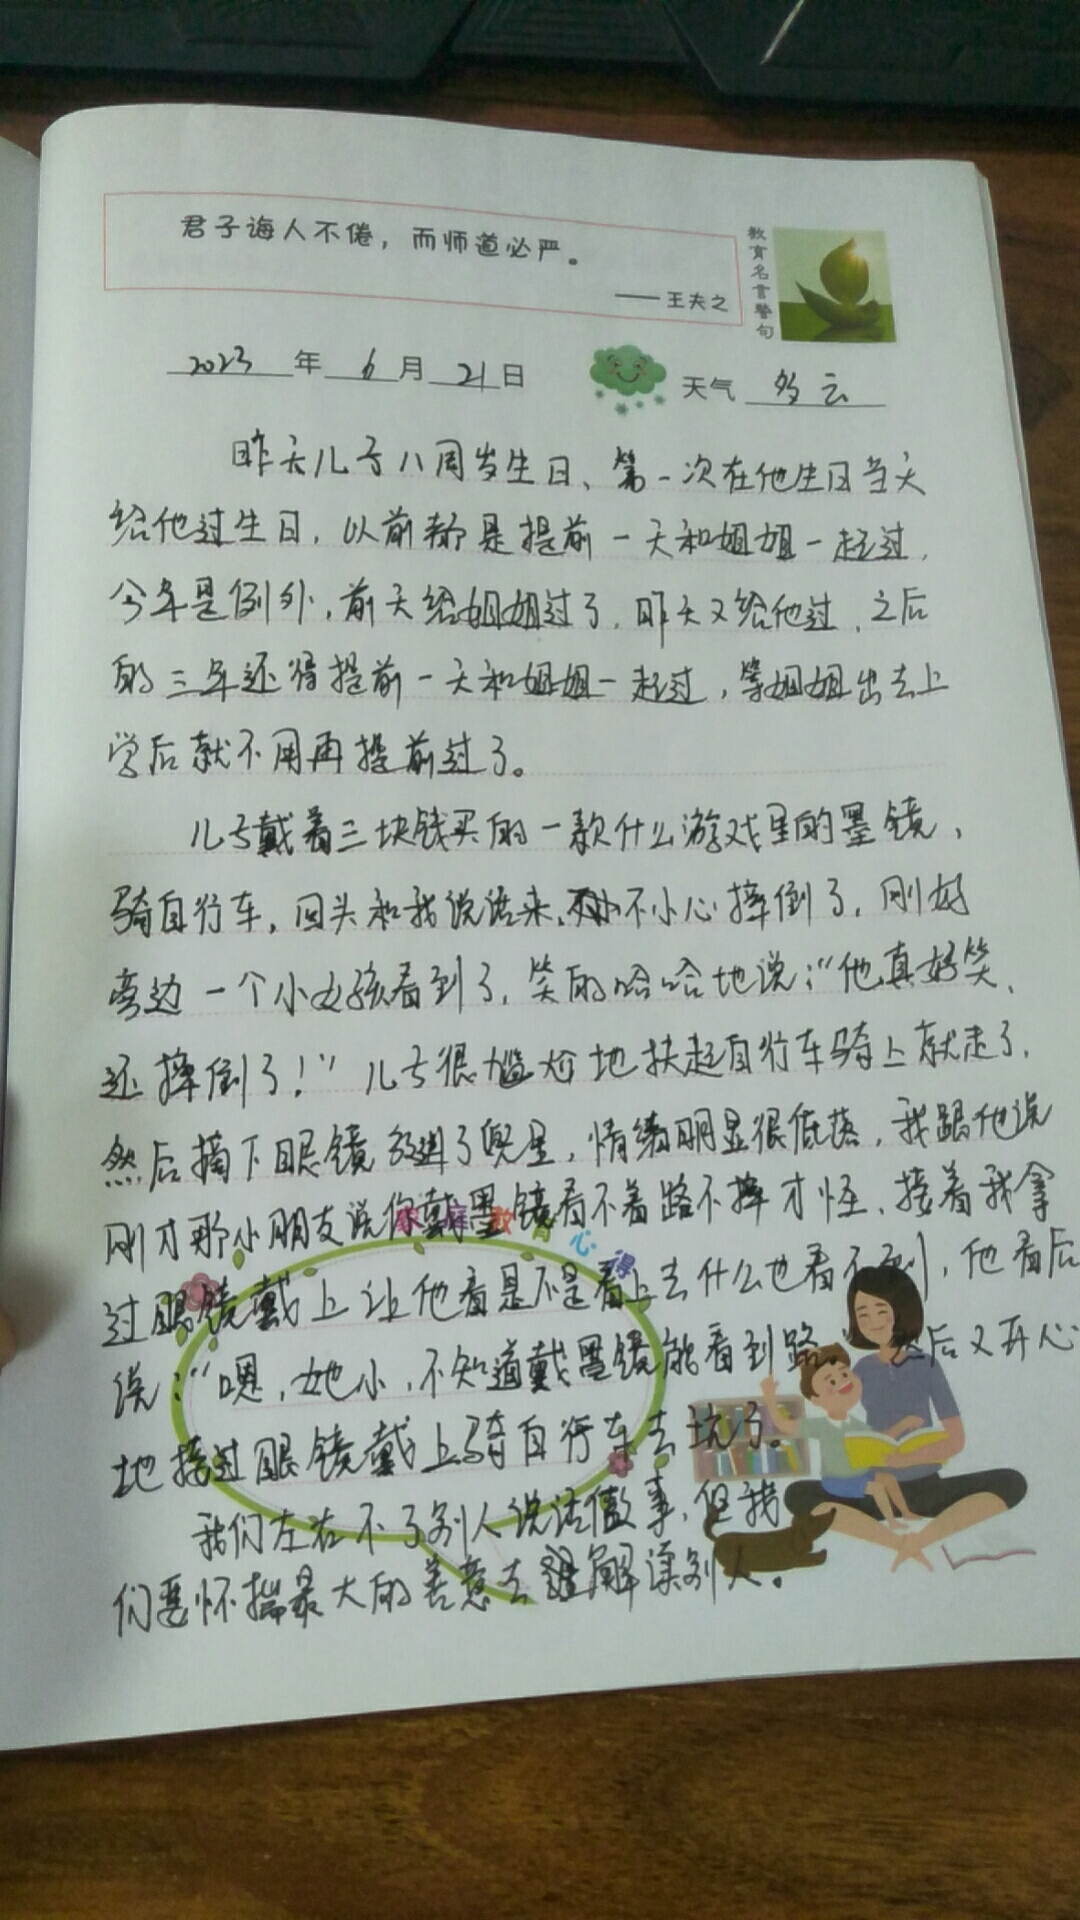 君子诲人不倦，而师道必严。
——王夫之
教育名言警句
2023年6月21日 天气 多云
昨天儿子八周岁生日、第一次在他生日当天
给他过生日，以前都是提前一天和姐姐一起过，
今年是例外，前天给姐姐过了，昨天又给他过，之后
的三年还得提前一天和姐姐一起过，等姐姐出去上
学后就不用再提前过了。
儿子戴着三块钱买的一款什么游戏里的墨镜，
骑自行车，回头和我说话来，不小心摔倒了，刚好
旁边一个小女孩看到了，笑的哈哈地说：“他真好笑、
还摔倒了！”儿子很尴尬地扶起自行车骑上就走了，
然后摘下眼镜放进了兜里，情绪明显很低落，我跟他说
刚才那小朋友说你戴墨镜看不着路不摔才怪，接着我拿
家庭教育心得
过眼镜戴上让他看是不是看上去什么也看不到，他看后
说：“嗯，她小，不知道戴墨镜能看到路。”然后又开心
地接过眼镜戴上骑自行车去玩了。
我们左右不了别人说话做事，但我
们要怀揣最大的善意去理解读别人。